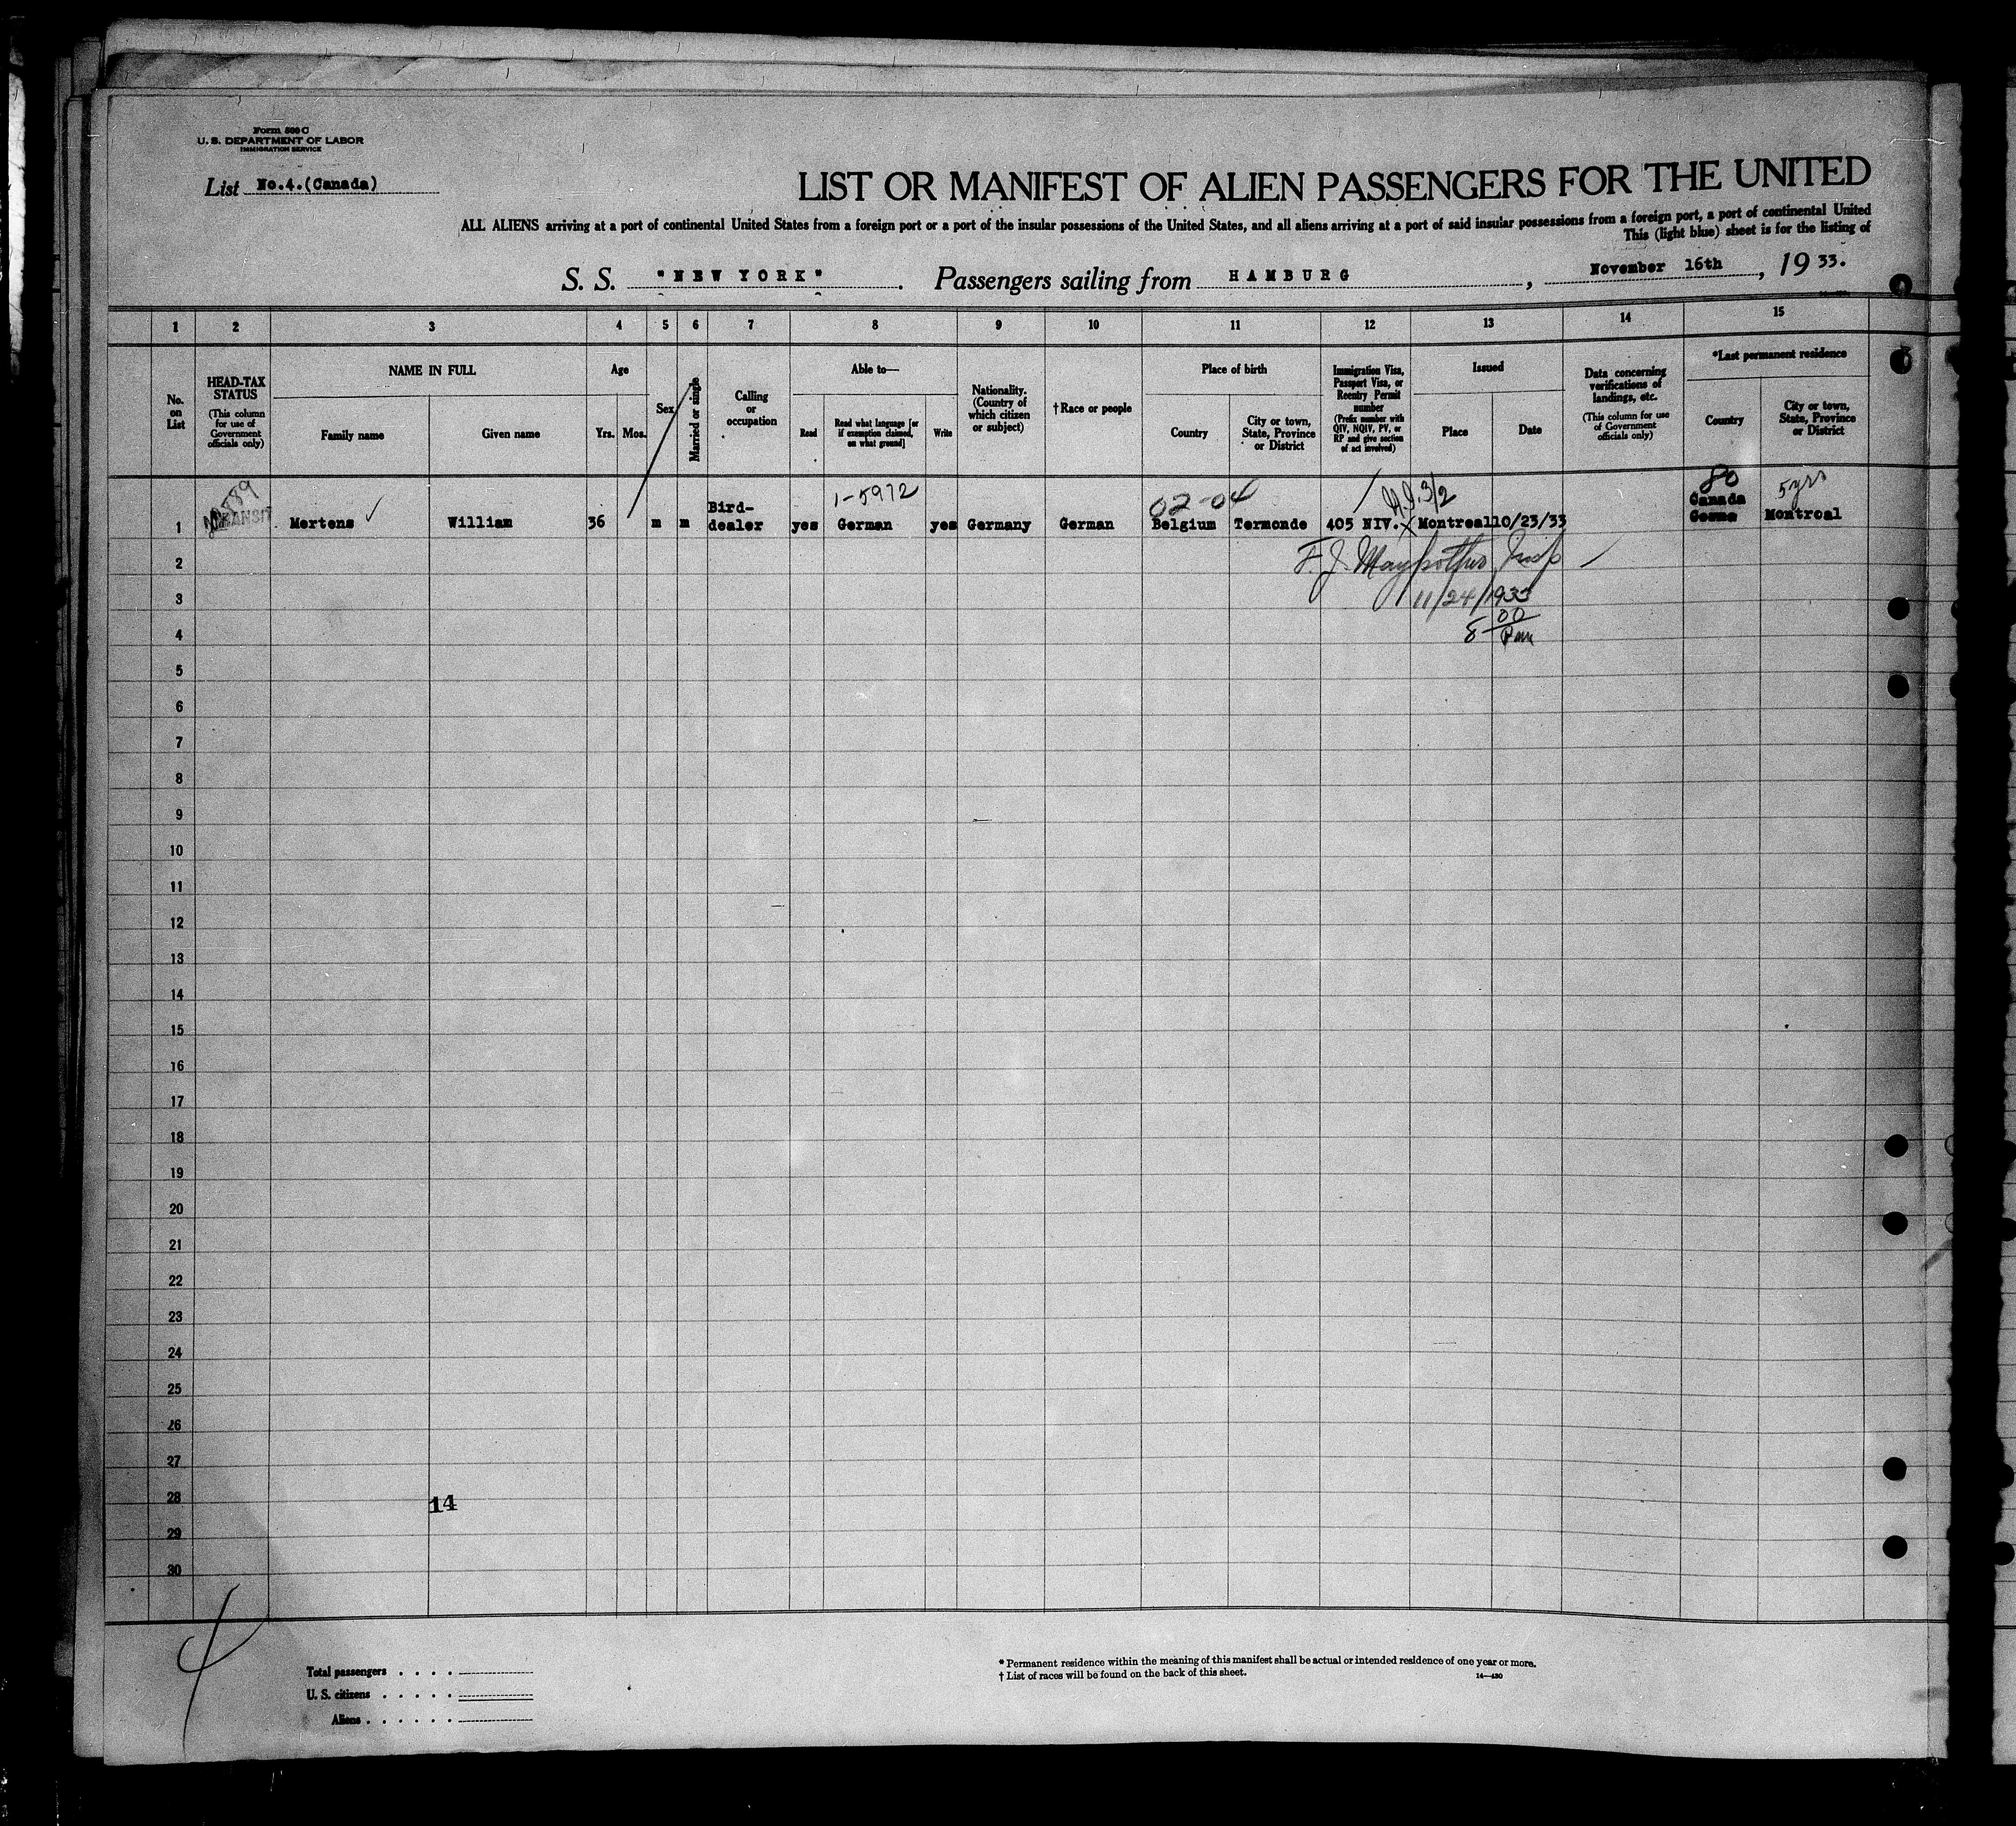 Form 500 C
U. S. DEPARTMENT OF LABOR
IMMIGRATION SERVICE
List No.4.(Canada)
LIST OR MANIFEST OF ALIEN PASSENGERS FOR THE UNITED
ALL ALIENS arriving at a port of continental United States from a foreign port or a port of the insular possessions of the United States, and all aliens arriving at a port of said insular possessions from a foreign port, a port of continental United
This (light blue) sheet is for the listing of
S. S. "NEW YORK". Passengers sailing from HAMBURG, November 16th, 19 33.
1 2 3 4 5 6 7 8 9 10 11 12 13 14 15
No. on List
HEAD-TAX STATUS
(This column for use of Government officials only)
NAME IN FULL
Family name
Given name
Age
Yrs. Mos.
Sex
Married or single
Calling or occupation
Able to—
Read
Read what language [or if exemption claimed, on what ground]
Write
Nationality. (Country of which citizen or subject)
† Race or people
Place of birth
Country
City or town, State, Province or District
Immigration Visa, Passport Visa, or Reentry Permit number
(Prefix number with QIV, NQIV, PV, or RP and give section of act involved)
Issued
Place
Date
Data concerning verifications of landings, etc.
(This column for use of Government officials only)
*Last permanent residence
Country
City or town, State, Province or District
1-5972 02-04 3/2 80 5yrs
TRANSIT
1 Mertens ✓ William 36 m m Bird-dealer yes German yes Germany German Belgium Termonde 405 NIV. Montreal 10/23/33 Canada Montreal
2 F. J. Insp
3 11/24/1933
4 8 00 Pm
5
6
7
8
9
10
11
12
13
14
15
16
17
18
19
20
21
22
23
24
25
26
27
28 14
29
30
4
Total passengers . . . .
U. S. citizens . . . . .
Aliens . . . . . .
* Permanent residence within the meaning of this manifest shall be actual or intended residence of one year or more.
† List of races will be found on the back of this sheet.
14—430